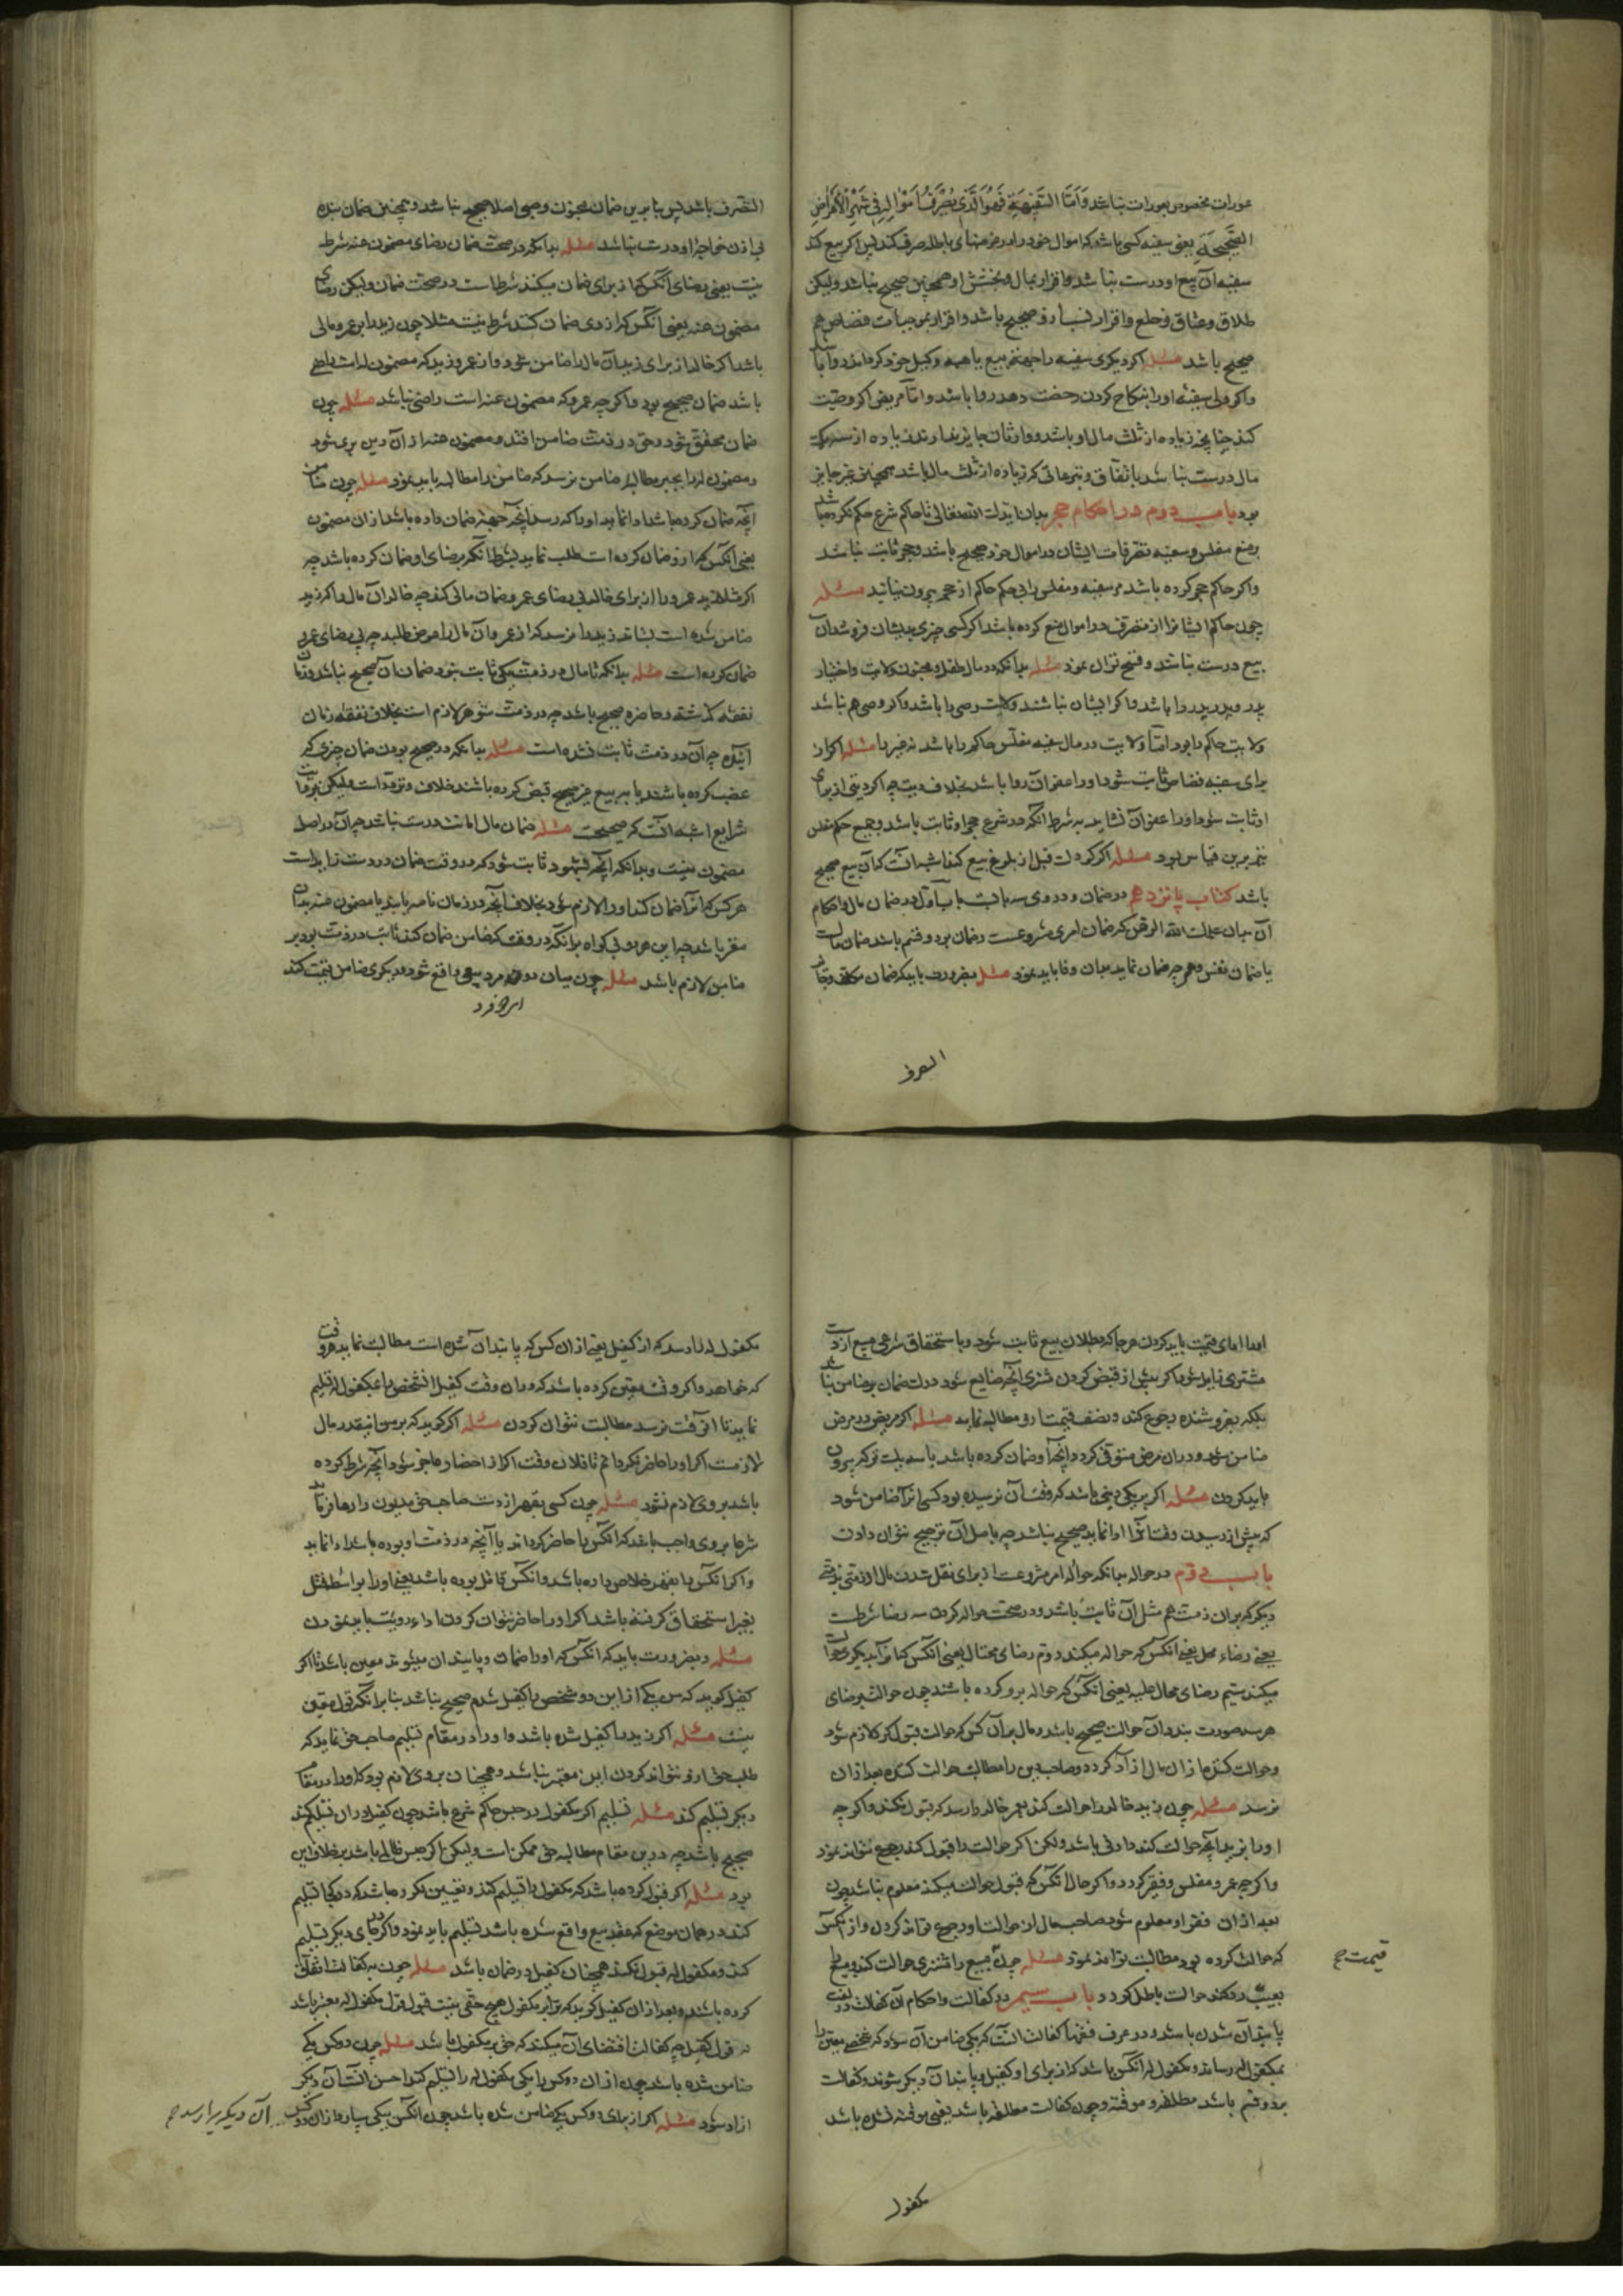 عورات مخصوص بعورات نباشد وَاَمَّا السَّفِیْهُ فَهُوَ الَّذِی یُصْرِفُ اَمْوَالَهُ فِی غَیْرِ الْاَغْرَاضِ
الصَّحِیحَةِ یعنی سفیه کسی باشد که اموال خود را در غرضهای باطله صرف کند پس اکر بیع کند
سفیه آن بیع او درست نباشد و اقرار بمال و بخشش او همچنین صحیح نباشد ولیکن
طلاق و عتاق و خلع و اقرار نسب او صحیح باشد و اقرار بموجبات قصاص هم
صحیح باشد مسئله اکر دیکری سفیه را جهة بیع یا هبه وکیل خود کرداند روا باشد
واکر ولی سفیه او را بنکاح کردن رخصت دهد روا باشد و امّا مریض اکر وصیت
کند چنانچه زیاده از ثلث مال او باشد و وارثان جایز ندارند زیاده از سه یک
مال درست نباشد باتفاق و تبرعاتی که زیاده از ثلث مال باشد همچنین غیر جایز
بود باب دوم در احکام حجر بدان ایدک الله تعالی تا حاکم شرع حکم نکرده باشد
بر منع مفلس و سفیه تصرفات ایشان در اموال خود صحیح باشد و حجر ثابت نباشد
واکر حاکم حجر کرده باشد بر سفیه و مفلس بی حکم حاکم از حجر بیرون نیایند مسئله
چون حاکم ایشانرا از تصرف در اموال منع کرده باشد اکر کسی چیزی بدیشان فروشد آن
بیع درست نباشد و فسخ توان نمود مسئله بدانکه در مال طفل و مجنون ولایت و اختیار
پدر و پدر پدر را باشد واکر ایشان نباشند ولایت وصی را باشد واکر وصی هم نباشد
ولایت حاکم را بود امّا ولایت در مال سفیه و مفلس حاکم را باشد نه غیر را مسئله اکر از
برای سفیه قصاص ثابت شود او را عفو آن روا باشد بخلاف دیت چه اکر دیتی از برای
او ثابت شود او را عفو آن نشاید به شرط آنکه در شرع حجر او ثابت باشد و جمیع حکم مفلس
نیز برین قیاس بود مسئله اکر کودک قبل از بلوغ بیع کند اشبه آنست که آن بیع صحیح
باشد کتاب پانزدهم در ضمان و در وی سه بابست باب اول در ضمان مال و احکام
آن بدان علمک الله الرحمن که ضمان امری مشروعست و ضمان بر دو قسم باشد ضمان مال
یا ضمان نفس و هر چه ضمان نماید بدان وفا باید نمود مسئله بضرورت باید که ضامن مکلف و جایز
التصرف
التصرف باشد پس بنا برین ضمان مجنون و صبی اصلا صحیح نباشد و همچنین ضمان بنده
بی اذن خواجه او درست نباشد مسئله بدانکه در صحت ضمان رضای مضمون عنه شرط
نیست یعنی رضای آنکس که از برای ضمان میکنند شرط است در صحت ضمان ولیکن رضای
مضمون عنه یعنی آنکس که از وی ضمان کنند شرط نیست مثلا چون زید را بر عمرو مالی
باشد اکر خالد از برای زید آن مال را ضامن شود از عمرو و زید که مضمون له است راضی
باشد ضمان صحیح بود واکر چه عمرو که مضمون عنه است راضی نباشد مسئله چون
ضمان محقق شود حق در ذمّت ضامن افتد و مضمون عنه از آن دین بری شود
و مضمون له را بجز مطالبه ضامن نرسد که ضامن را مطالبه باید نمود مسئله چون ضامن
آنچه ضمان کرده باشد ادا نماید او را که رسد آنچه جهة ضمان داده باشد از آن مضمون
یعنی آنکس که ازو ضمان کرده است طلب نماید بشرط آنکه برضای او ضمان کرده باشد چه
اکر مثلا زید عمرو را از برای خالد بی رضای عمرو ضمان مالی کند چه خالد آن مال را که زید
ضامن شده است بستاند زید را نرسد که از عمرو آن مال را عوض طلبد چه بی رضای عمرو
ضمان کرده است مسئله بدانکه تا مال در ذمت یکی ثابت نبود ضمان آن صحیح نباشد و زنان
نفقه گذشته و حاضره صحیح باشد چه در ذمت شوهر لازم است بخلاف نفقه زمان
آینده چه آن در ذمت ثابت نشده است مسئله بدانکه در صحیح بودن ضمان چیزی که
غصب کرده باشند یا به بیع غیر صحیح قبض کرده باشند خلاف و تردد است ولیکن بروایت
شرایع اشبه آنست که صحیحست مسئله ضمان مال امانت درست نباشد چه آن در اصل
مضمون نیست و بدانکه آنچه بشهود ثابت شود که در وقت ضمان در دست زید است
هر کس که آنرا ضمان کند او را لازم شود بخلاف آنچه در زمان تا صربا یا مضمون عنه بدان
مقر باشد چه این هر دو بی کواه بدانکه در وقت که ضامن ضمان کند ثابت در ذمت بود بر
ضامن لازم باشد مسئله چون میان دو مرد بیع واقع شود و دیکری ضامن قیمت کند
ابدا
ابدا ادای قیمت باید کردن هر جا که بطلان بیع ثابت شود و باستحقاق شرعی مبیع از دست
مشتری بدر شود اکر پیش از قبض کردن مشتری آنچه ضایع شود درک ضمان بر ضامن نباشد
بلکه بفروشنده رجوع کند و نصف قیمت ازو مطالبه نماید مسئله اکر مریض در مرض
ضامن شود و در آن مرض متوفی کردد آنچه او ضمان کرده باشد باید از ثلث ترکه بیرون
باید کردن مسئله اکر بر یکی دینی باشد که وقت آن نرسیده بود کسی آنرا ضامن شود
که پیش از رسیدن وقت آنرا ادا نماید صحیح نباشد چه باصل آن ترجیح نتوان دادن
باب دوم در حواله بدانکه حواله امر مشروعست از برای نقل شدن مال از ذمتی بذمتی
دیکر که بران ذمت هم مثل آن ثابت باشد و در صحت حواله کردن سه رضا شرطست
یعنی رضاء محیل یعنی آنکس که حواله میکند دوم رضای محتال یعنی آنکس که بنام او بدیکری حوالت
میکند سیم رضای محال علیه یعنی آنکس که حواله برو کرده باشند چون حوالت برضای
هر سه صورت بندد آن حوالت صحیح باشد و مال بر آن کس که حوالت قبول کند لازم شود
و حوالت کننده از آن مال آزاد کردد و صاحب دین را مطالبه حوالت کننده بعد از آن
نرسد مسئله چون زید خالد را حوالت کند بعمرو خالد را رسد که قبول نکند واکر چه
او را بر زید آنچه حوالت کند دارائی باشد ولکن اکر حوالت را قبول کند رجوع نتواند نمود
واکر چه عمرو مفلس و فقیر کردد واکر حال آنکس که قبول حوالت میکند معلوم نباشد چون
بعد از آن فقر او معلوم شود صاحب مال از حوالت او رجوع تواند کردن و از آنکس
که حوالت کرده بود مطالبت تواند نمود مسئله چون مبیع را مشتری حوالت کند و مبیع را
قیمت ح
بعیب رد کند حوالت باطل کردد باب سیم در کفالت و احکام آن کفالت در لغت
پابندان شدن باشد و در عرف فقها کفالت آنست که یکی ضامن آن شود که شخصی معین را
بمکفول له رساند و مکفول له آنکس باشد که از برای او کفیل و پابندان دیکر شوند و کفالت
بر دو قسم باشد مطلقه و موقته و چون کفالت مطلقه باشد یعنی موقته نشده باشد
مکفول
مکفول له را رسد که از کفیل یعنی از آن کس که پابندان شده است مطالبت نماید هر وقت
که خواهد واکر وقت معین کرده باشد که در آن وقت کفیل آن شخص را بمکفول له تسلیم
نماید تا آن وقت نرسد مطالبت نتوان کردن مسئله اکر کوید که بر من اینقدر مال
لازمست اکر او را حاضر نکردانم تا فلان وقت اکر از احضار عاجز شود آنچه شرط کرده
باشد بر وی لازم نشود مسئله چون کسی بقهر از دست صاحب حق مدیون را رها نماید
شرعا بر وی واجب باشد که آنکس را حاضر کرداند یا آنچه در ذمت او بوده باشد ادا نماید
واکر آنکس را بقهر خلاص داده باشد و آنکس قاتل بوده باشد یعنی او را بواسطه قتل
بغیر استحقاق کرفته باشد اکر او را حاضر نتوان کردن اداء دیت باید نمودن
مسئله و بضرورت باید که آنکس که او را ضمان و پابندان میشوند معین باشد تا اکر
کفیل کوید که من یکی از این دو شخص را کفیل شدم صحیح نباشد بنا برانکه قول معین
نیست مسئله اکر زید را کفیل شده باشد و او را در مقام تسلیم صاحب حق نماید که
طلب حق ازو نتواند کردن این معتبر نباشد و همچنان بر وی لازم بود که او را در مقام
دیکر تسلیم کند مسئله تسلیم اکر مکفول در حبس حاکم شرع باشد چون کفیل در آن تسلیم کند
صحیح باشد چه در این مقام مطالبه حق ممکن است ولیکن اکر حبس ظالمی باشد بر خلاف این
بود مسئله اکر قبول کرده باشد که مکفول را تسلیم کند و تعیین نکرده باشد که در کجا تسلیم
کند در همان موضع که عقد بیع واقع شده باشد تسلیم باید نمود واکر در جای دیکر تسلیم
کند و مکفول له قبول نکند همچنان کفیل در ضمان باشد مسئله چون بر کفالت اتفاق
کرده باشند و بعد از آن کفیل کوید که ترا بر مکفول هیچ حقی نیست قول قول مکفول له معتبر باشد
نه قول کفیل چه کفالت اقتضای آن میکند که حق بر مکفول باشد مسئله چون دو کس یکی
ضامن شده باشند چون از آن دو کس را یکی مکفول له را تسلیم کند احسن آنست آن دیکر
آزاد شود مسئله اکر از برای دو کس یکی ضامن شده باشد چون آنکس بیکی سپارد از آن دو کس
آن دیکر را رسد ح